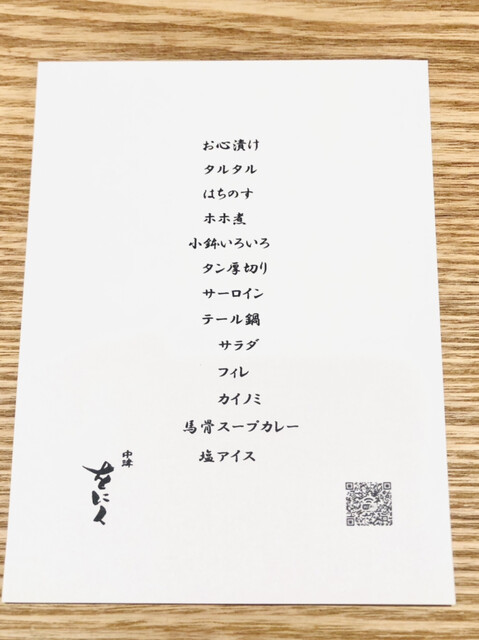 お心漬け
タルタル
はちのす
ホホ煮
小鉢いろいろ
タン厚切り
サーロイン
テール鍋
サラダ
フィレ
カイノミ
馬骨スープカレー
塩アイス
をにく